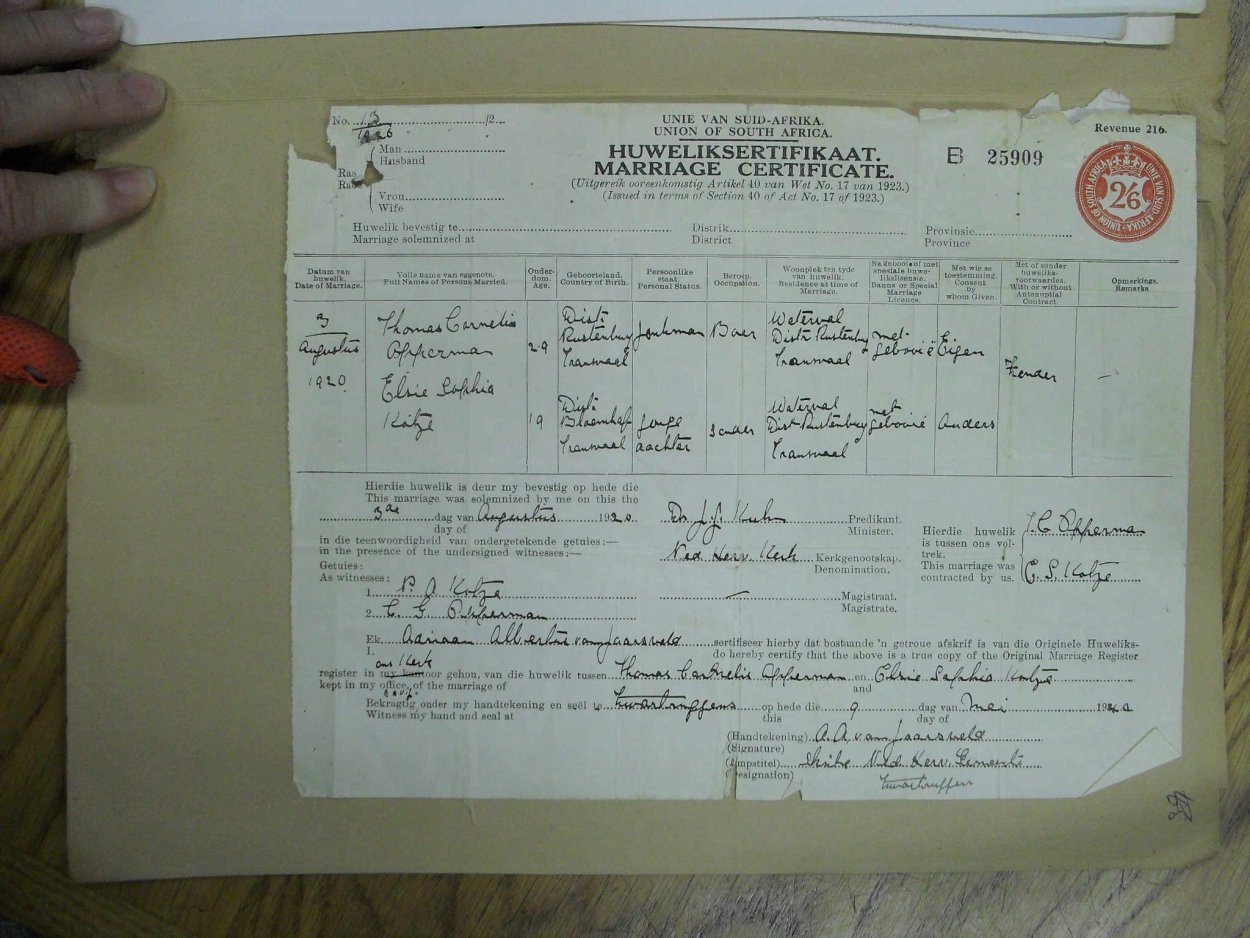 No. 13/1926 /2
UNIE VAN SUID-AFRIKA.
UNION OF SOUTH AFRICA.
Revenue 216.
HUWELIKSERTIFIKAAT.
MARRIAGE CERTIFICATE.
B 25909
(Uitgereik ooreenkomstig Artikel 40 van Wet No. 17 van 1923.)
(Issued in terms of Section 40 of Act No. 17 of 1923.)
UNIE VAN SUID AFRIKA · UNION OF SOUTH AFRICA
2/6
Ras
Man
Husband
Vrou
Wife
Huwelik bevestig te
Marriage solemnized at
Distrik
District
Provinsie
Province
Datum van huwelik. Date of Marriage.
Volle name van eggenote. Full Names of Persons Married.
Ouderdom. Age.
Geboorteland. Country of Birth.
Persoonlike staat. Personal Status.
Beroep. Occupation.
Woonplek ten tyde van huwelik. Residence at time of Marriage.
Na gebooie of met spesiale huwelikslisensie. Banns or Special Marriage Licence.
Met wie se toestemming. Consent by whom Given.
Met of sonder huweliksvoorwaardes. With or without Antenuptial Contract.
Opmerkings. Remarks
3 Augustus 1920
Thomas Cornelis Opperman
29
Distr Rustenburg Transvaal
Jonkman
Boer
Waterval Distr Rustenburg Transvaal
met gebooie
Eigen
Zonder
—
Elsie Sophia Kotze
19
Dist Bloemhof Transvaal
Jonge dochter
Waterval Dist Rustenburg Transvaal
met gebooie
Anders
Hierdie huwelik is deur my bevestig op hede die
This marriage was solemnized by me on this the
3de dag van Augustus 1920
day of
in die teenwoordigheid van ondergetekende getuies:—
in the presence of the undersigned witnesses:—
Getuies:
As witnesses:
1. P. J. Kotze
2. C. G. Opperman
Predikant.
Minister.
Ned Herv. Kerk Kerkgenootskap.
Denomination.
— Magistraat.
Magistrate.
Hierdie huwelik is tussen ons voltrek.
This marriage was contracted by us.
T. C. Opperman
E. S. Kotze
Ek, Adriaan Albertus van Jaarsveld sertifiseer hierby dat bostaande 'n getroue afskrif is van die Originele Huweliks-
I, do hereby certify that the above is a true copy of the Original Marriage Register
ons Kerk
register in my kantoor gehou, van die huwelik tussen Thomas Cornelis Opperman en Elsie Sophia Kotze
kept in my office, of the marriage of and
Bekragtig onder my handtekening en seël te Zwartruggens op hede die 9 dag van Mei 1940
Witness my hand and seal at this day of
(Handtekening) A. A. van Jaarsveld
(Signature)
(Ampstitel) Skriba Ned. Herv. Gemeente
Designation) Zwartruggens